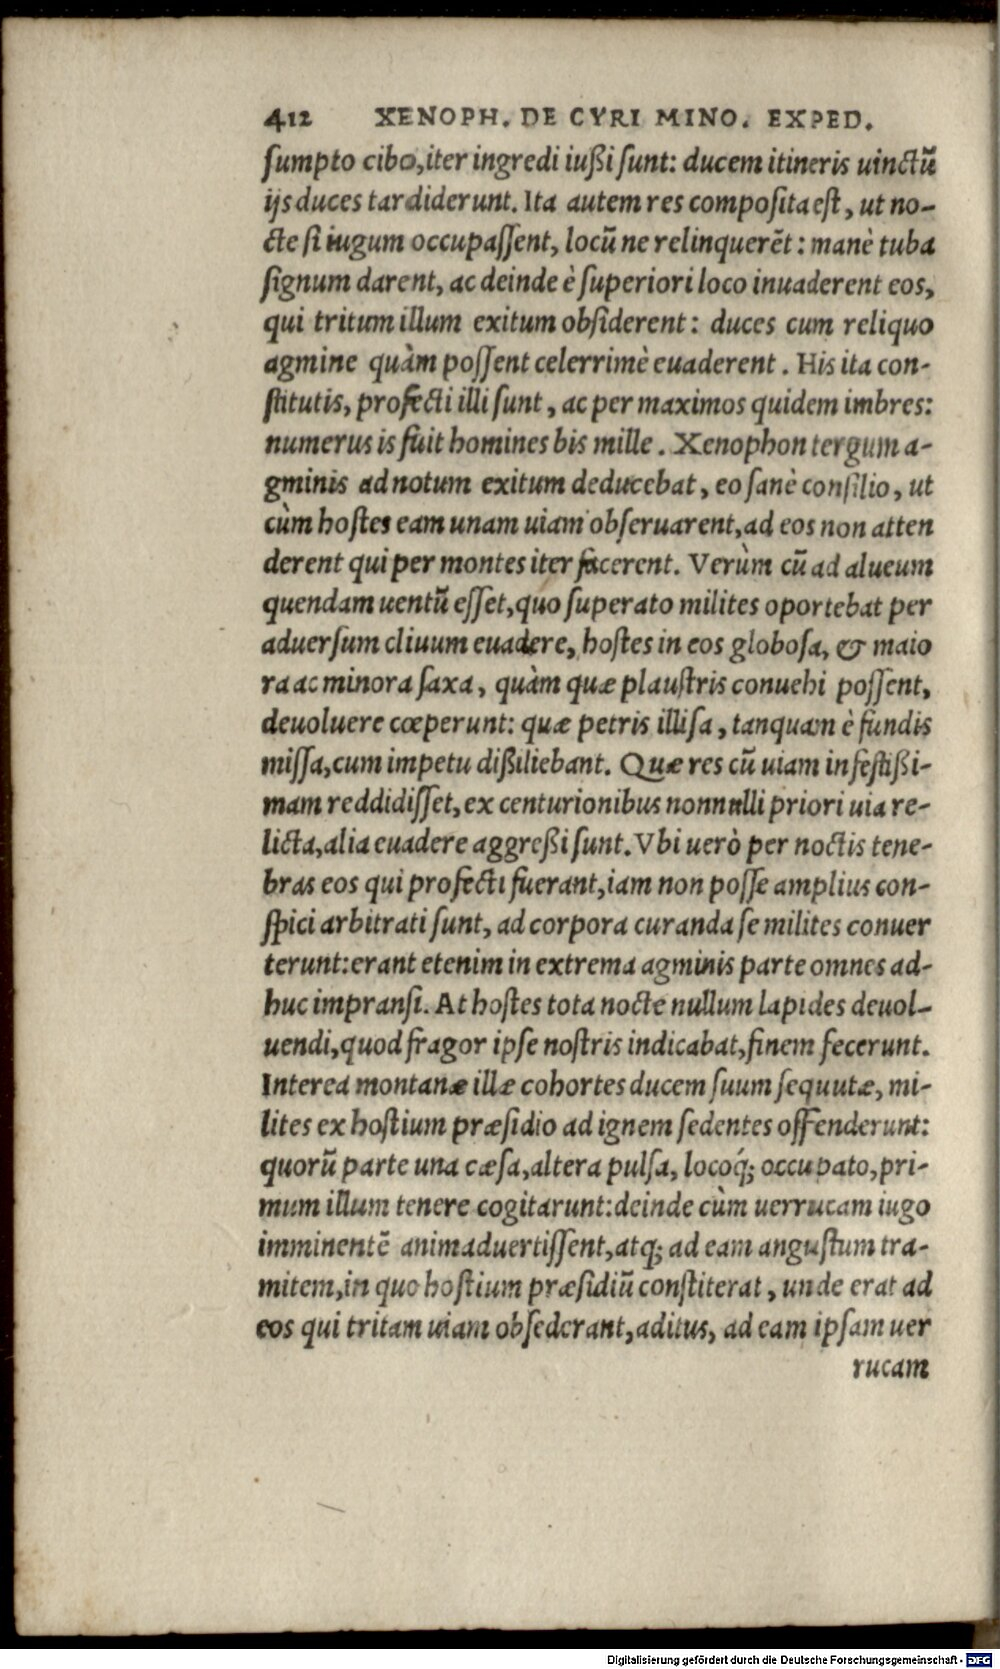 412 XENOPH. DE CYRI MINO. EXPED.
sumpto cibo, iter ingredi iußi sunt: ducem itineris uinctũ
ijs duces tardiderunt. Ita autem res composita est, ut no-
cte si iugum occupassent, locũ ne relinquerẽt: manè tuba
signum darent, ac deinde è superiori loco inuaderent eos,
qui tritum illum exitum obsiderent: duces cum reliquo
agmine quàm possent celerrimè euaderent. His ita con-
stitutis, profecti illi sunt, ac per maximos quidem imbres:
numerus is fuit homines bis mille. Xenophon tergum a-
gminis ad notum exitum deducebat, eo sanè consilio, ut
cùm hostes eam unam uiam obseruarent, ad eos non atten
derent qui per montes iter facerent. Verùm cũ ad alueum
quendam uentũ esset, quo superato milites oportebat per
aduersum cliuum euadere, hostes in eos globosa, & maio
ra ac minora saxa, quàm quæ plaustris conuehi possent,
deuoluere cœperunt: quæ petris illisa, tanquam è fundis
missa, cum impetu dißiliebant. Quæ res cũ uiam infestißi-
mam reddidisset, ex centurionibus nonnulli priori uia re-
licta, alia euadere aggreßi sunt. Vbi uerò per noctis tene-
bras eos qui profecti fuerant, iam non posse amplius con-
spici arbitrati sunt, ad corpora curanda se milites conuer
terunt: erant etenim in extrema agminis parte omnes ad-
huc impransi. At hostes tota nocte nullum lapides deuol-
uendi, quod fragor ipse nostris indicabat, finem fecerunt.
Interea montanæ illæ cohortes ducem suum sequutæ, mi-
lites ex hostium præsidio ad ignem sedentes offenderunt:
quorũ parte una cæsa, altera pulsa, locoq́; occupato, pri-
mum illum tenere cogitarunt: deinde cùm uerrucam iugo
imminentẽ animaduertissent, atq; ad eam angustum tra-
mitem, in quo hostium præsidiũ constiterat, unde erat ad
eos qui tritam uiam obsederant, aditus, ad eam ipsam uer
rucam
Digitalisierung gefördert durch die Deutsche Forschungsgemeinschaft - DFG